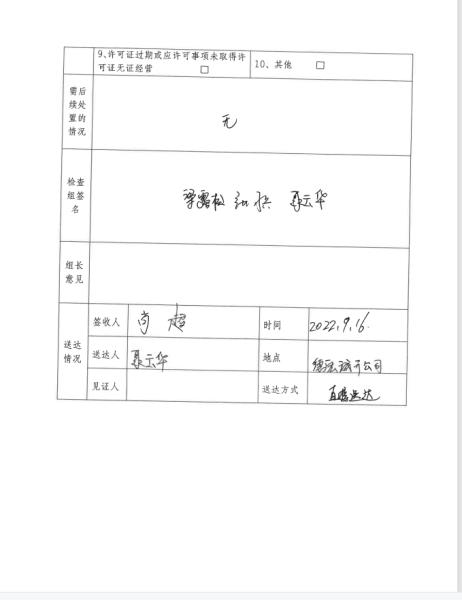 9、许可证过期或应许可事项未取得许
可证无证经营 □
10、其他 □
需后
续处
置的
情况
无
检查
组签
名
聂云华
组长
意见
送达
情况
签收人
肖超
时间
2022.9.16.
送达人
聂云华
地点
公司
见证人
送达方式
直接送达